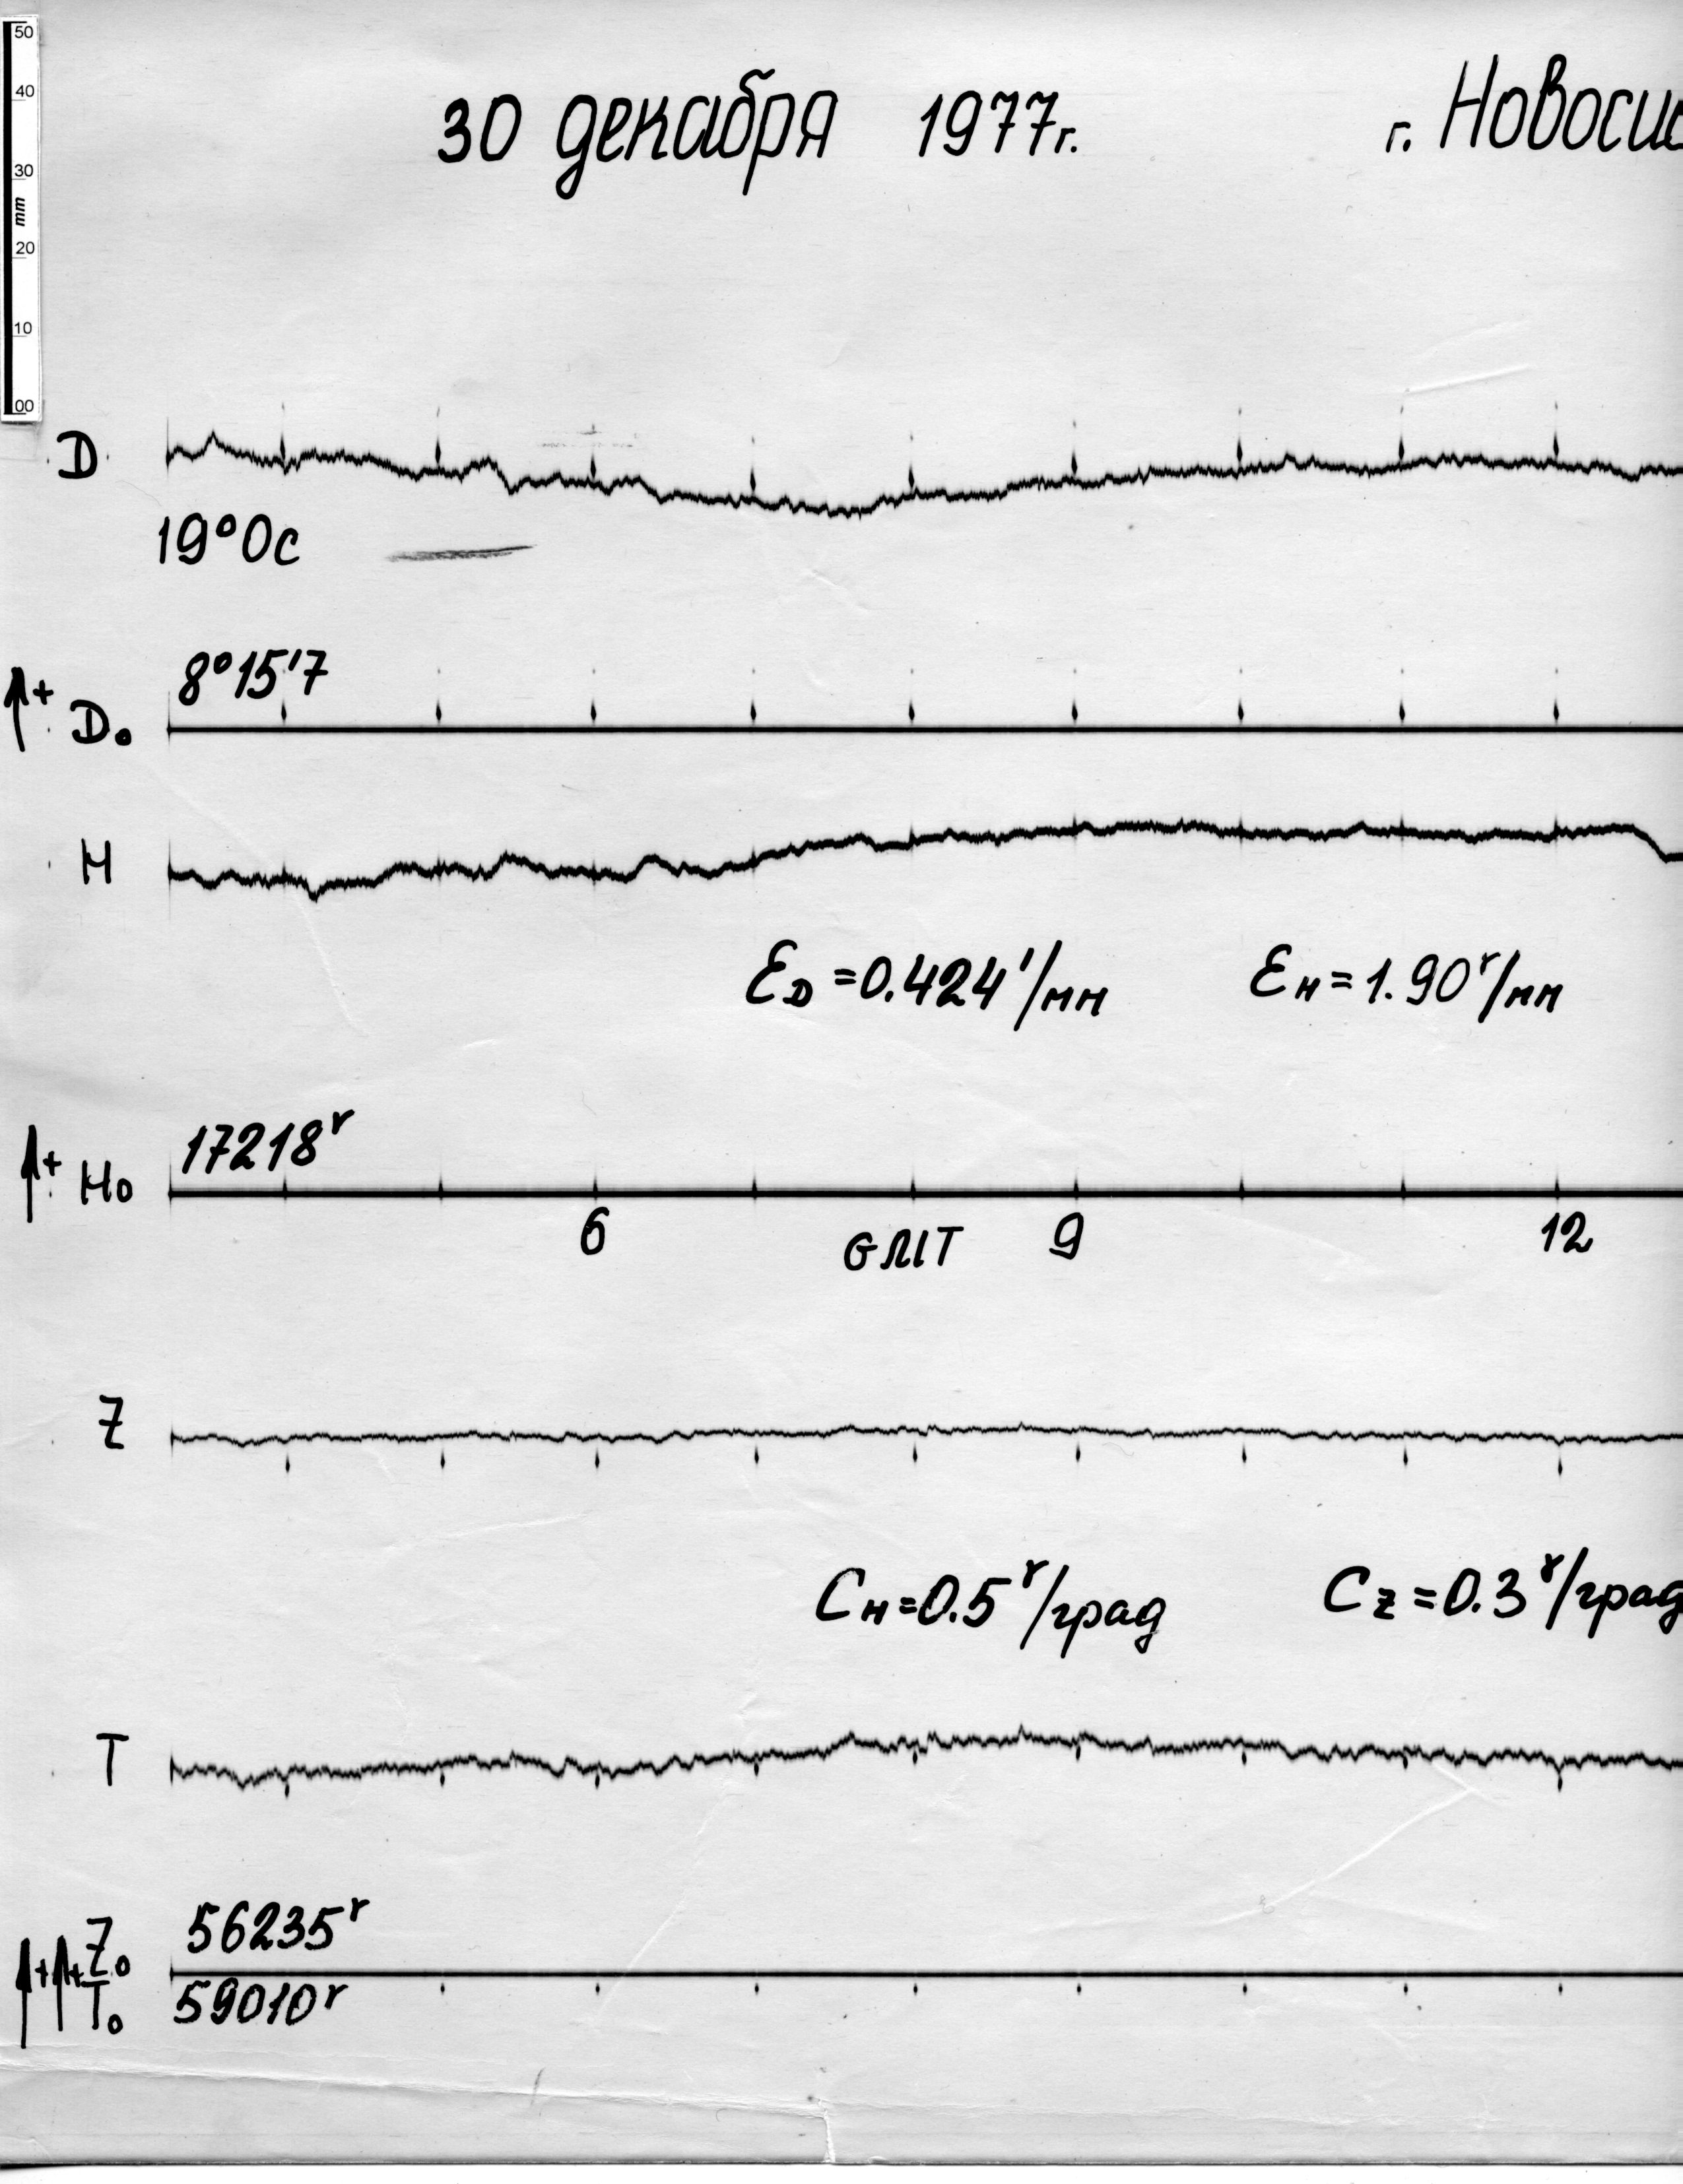 50
40
30
mm
20
10
00
30 декабря 1977г. г. Новоси
D
19°0с
8°15'7
+ D₀
H
ℰD = 0.424'/мм ℰH = 1.90γ/мм
17218γ
+ H₀
6 GMT 9 12
Z
CH = 0.5γ/град CZ = 0.3γ/град
T
56235γ
+ + Z₀
T₀ 59010γ